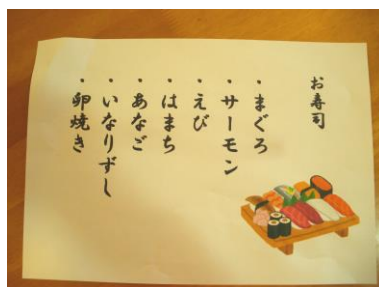 お寿司
・まぐろ
・サーモン
・えび
・はまち
・あなご
・いなりずし
・卵焼き